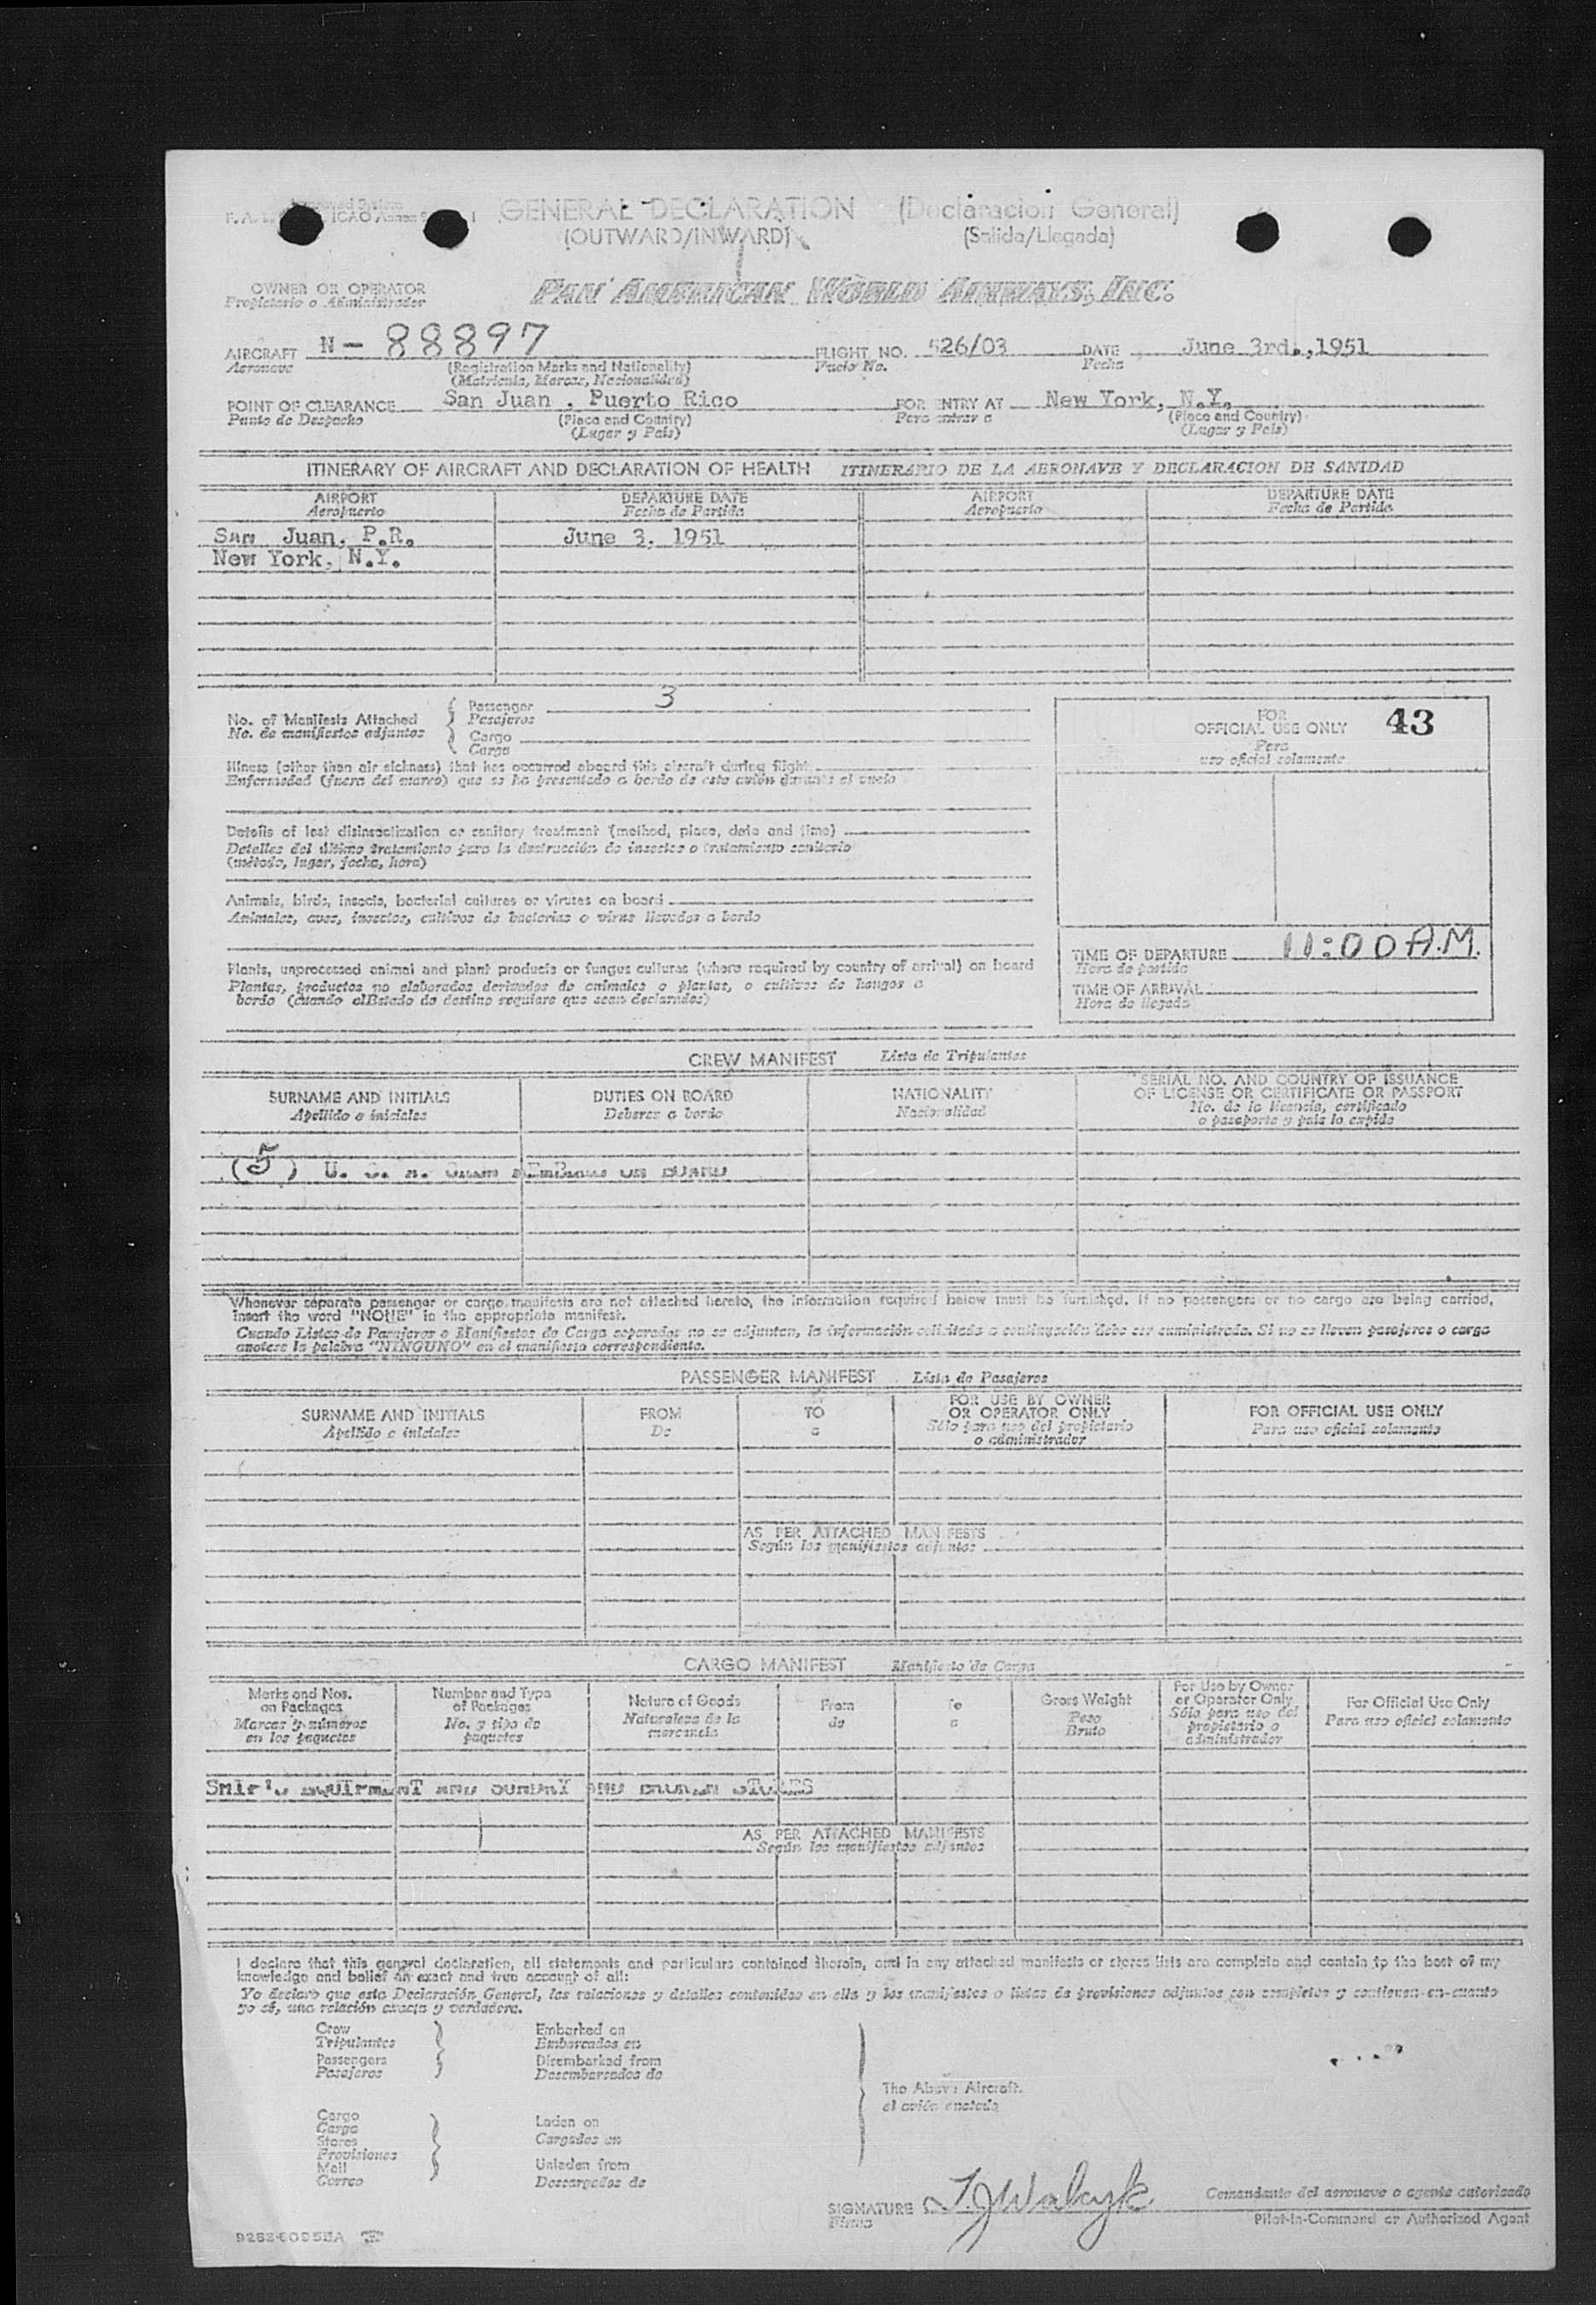 GENERAL DECLARATION (Declaracion General)
(OUTWARD/INWARD) (Salida/Llegada)
OWNER OR OPERATOR
Propietario o Administrador
PAN AMERICAN WORLD AIRWAYS, INC.
AIRCRAFT N-88897 FLIGHT NO. 526/03 DATE June 3rd.,1951
Aeronave (Registration Marks and Nationality) Vuelo No. Fecha
(Matricula, Marcas, Nacionalidad)
POINT OF CLEARANCE San Juan , Puerto Rico FOR ENTRY AT New York, N.Y.
Punto de Despacho (Place and Country) Para entrar a (Place and Country)
(Lugar y Pais) (Lugar y Pais)
ITINERARY OF AIRCRAFT AND DECLARATION OF HEALTH ITINERARIO DE LA AERONAVE Y DECLARACION DE SANIDAD
AIRPORT DEPARTURE DATE AIRPORT DEPARTURE DATE
Aeropuerto Fecha de Partida Aeropuerto Fecha de Partida
San Juan, P.R. June 3, 1951
New York, N.Y.
No. of Manifests Attached Passenger 3
No. de manifiestos adjuntos Pasajeros
Cargo
Carga
FOR OFFICIAL USE ONLY 43
Para uso oficial solamente
Illness (other than air sickness) that has occurred aboard this aircraft during flight
Enfermedad (fuera del mareo) que se ha presentado a bordo de este avión durante el vuelo
Details of last disinsectization or sanitary treatment (method, place, date and time)
Detalles del último tratamiento para la destrucción de insectos o tratamiento sanitario
(método, lugar, fecha, hora)
Animals, birds, insects, bacterial cultures or viruses on board
Animales, aves, insectos, cultivos de bacterias o virus llevados a bordo
Plants, unprocessed animal and plant products or fungus cultures (where required by country of arrival) on board
Plantas, productos no elaborados derivados de animales o plantas, o cultivos de hongos a
bordo (cuando el Estado de destino requiere que sean declarados)
TIME OF DEPARTURE 11:00 A.M.
Hora de partida
TIME OF ARRIVAL
Hora de llegada
CREW MANIFEST Lista de Tripulantes
SURNAME AND INITIALS DUTIES ON BOARD NATIONALITY SERIAL NO. AND COUNTRY OF ISSUANCE
OF LICENSE OR CERTIFICATE OR PASSPORT
Apellido e iniciales Deberes a bordo Nacionalidad No. de la licencia, certificado
o pasaporte y pais lo expide
(5) U. S.
Whenever separate passenger or cargo manifests are not attached hereto, the information required below must be furnished. If no passengers or no cargo are being carried,
insert the word "NONE" in the appropriate manifest.
Cuando Listas de Pasajeros o Manifiestos de Carga separados no se adjuntan, la información solicitada a continuación debe ser suministrada. Si no se llevan pasajeros o carga
anótese la palabra "NINGUNO" en el manifiesto correspondiente.
PASSENGER MANIFEST Lista de Pasajeros
SURNAME AND INITIALS FROM TO FOR USE BY OWNER OR OPERATOR ONLY FOR OFFICIAL USE ONLY
Apellido e iniciales De a Sólo para uso del propietario o administrador Para uso oficial solamente
AS PER ATTACHED MANIFESTS
Según los manifiestos adjuntos
CARGO MANIFEST Manifiesto de Carga
Marks and Nos. on Packages Number and Type of Packages Nature of Goods From To Gross Weight For Use by Owner or Operator Only For Official Use Only
Marcas y números en los paquetes No. y tipo de paquetes Naturaleza de la mercancia de a Peso Bruto Sólo para uso del propietario o administrador Para uso oficial solamente
AS PER ATTACHED MANIFESTS
Según los manifiestos adjuntos
I declare that this general declaration, all statements and particulars contained therein, and in any attached manifests or stores lists are complete and contain to the best of my
knowledge and belief an exact and true account of all:
Yo declaro que esta Declaración General, las relaciones y detalles contenidos en ella y los manifiestos o listas de provisiones adjuntos son completos y contienen en cuanto
yo sé, una relación exacta y verdadera.
Crew Embarked on
Tripulantes Embarcados en
Passengers Disembarked from
Pasajeros Desembarcados de
The Above Aircraft.
el avión anotado
Cargo Laden on
Carga Cargadas en
Stores
Provisiones
Mail Unladen from
Correo Descargadas de
SIGNATURE Comandante del aeronave o agente autorizado
Firma Pilot-in-Command or Authorized Agent